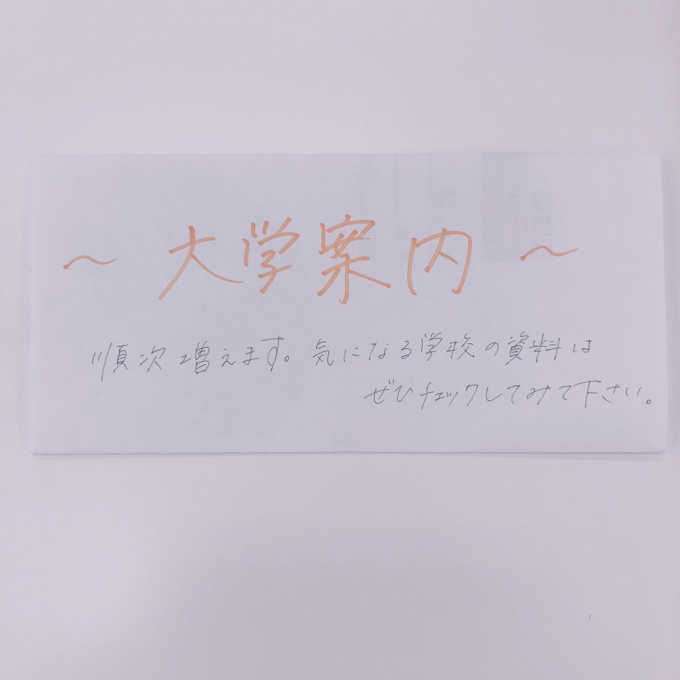 ～ 大学案内 ～
順次増えます。気になる学校の資料は
ぜひチェックしてみて下さい。